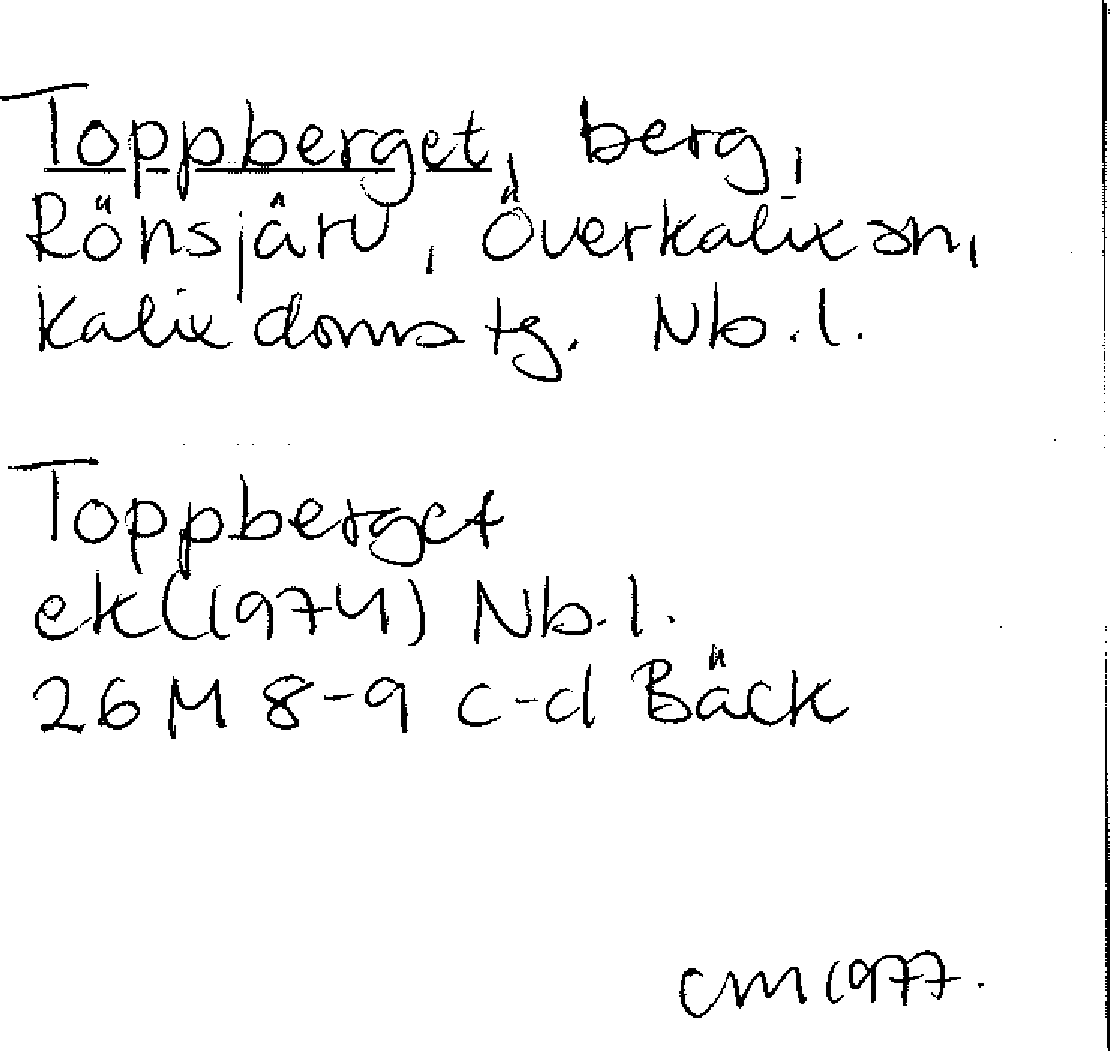 Toppberget, berg,
Rönsjärv, Överkalix sn,
Kalix domstg. Nb.l.
Toppberget
ek (1974) Nb.l.
26 M 8-9 c-d Bäck
CM 1977.